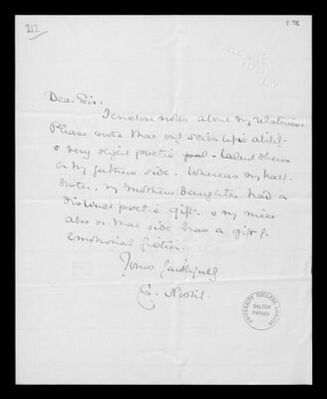 212
Dear Sir,
I enclose notes about my relatives.
Please note that only scientific ability
& very slight poetic talent shows
on my father's side. Whereas my half-
sister, my mother's daughter had a
distinct poetic gift & my niece
also on that side has a gift for
emotional fiction.
Yours faithfully
E. Nesbit.
UNIVERSITY COLLEGE LONDON
GALTON
PAPERS